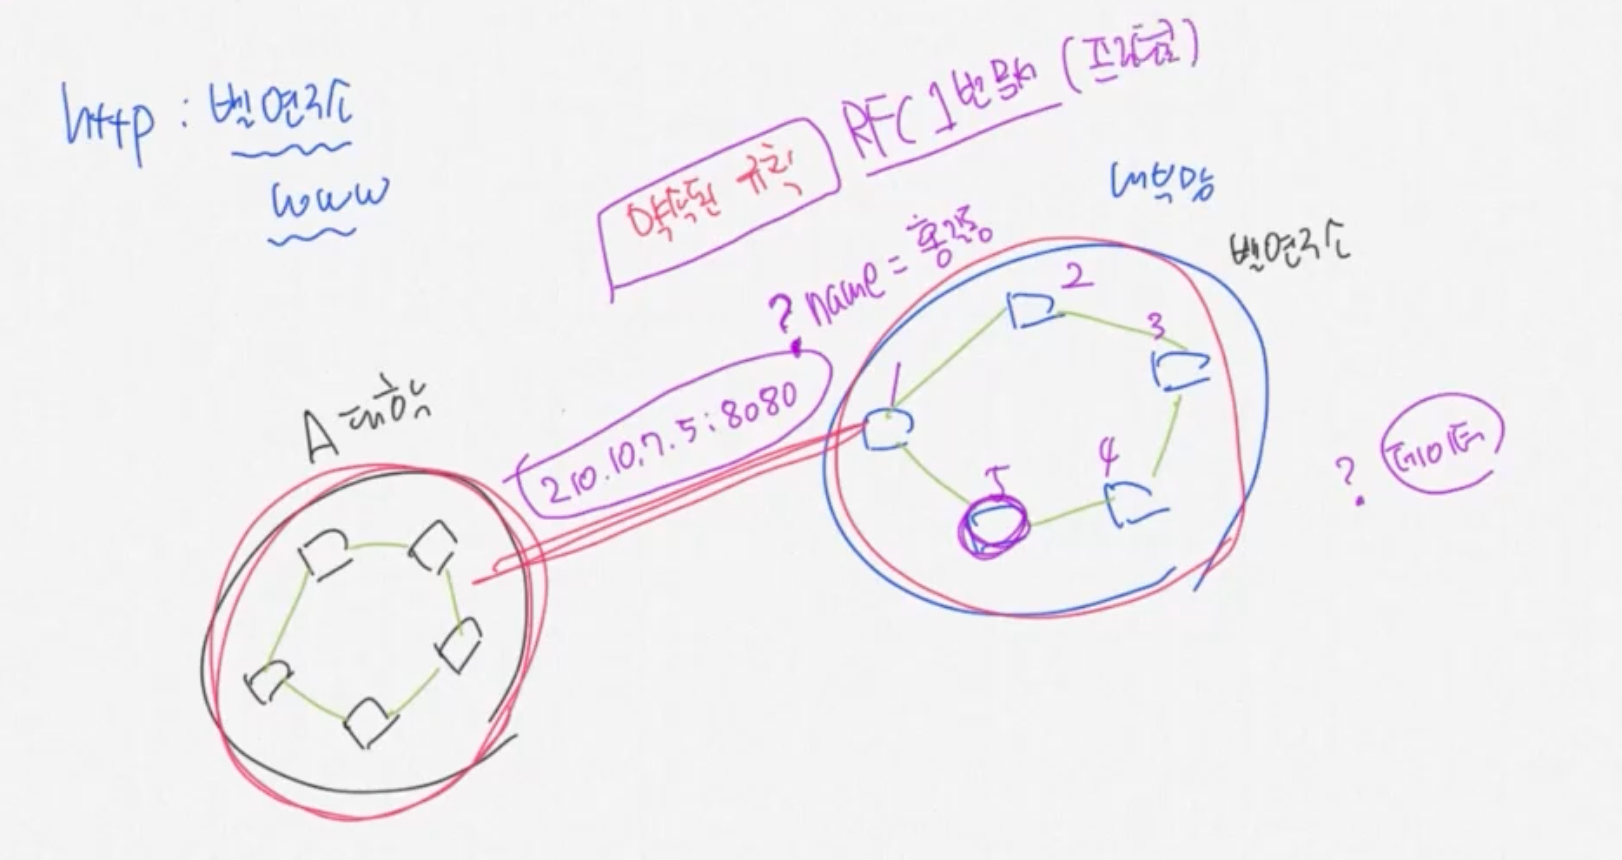 http : 벨연구소
www
약속된 규칙
RFC 1번 문서 (프로토콜)
내부망
벨연구소
? name = 홍길동
210.10.7.5:8080
A 대학
1
2
3
4
5
? 데이터